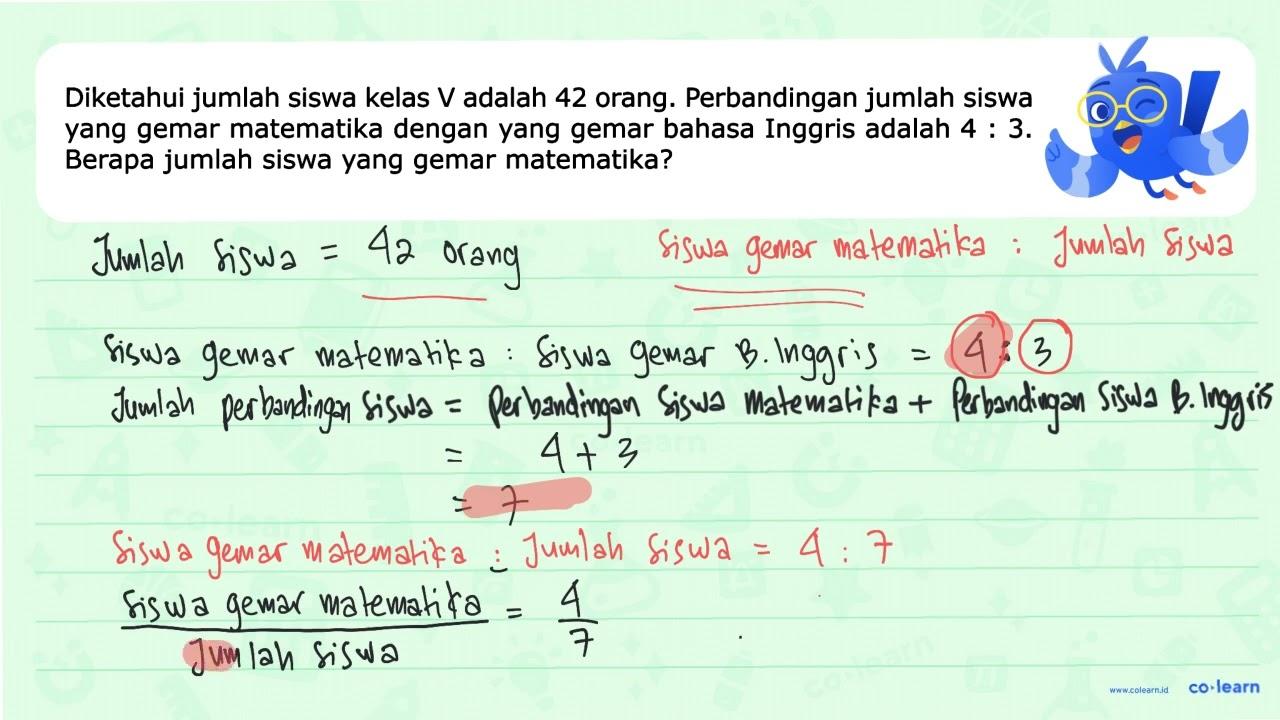 Diketahui jumlah siswa kelas V adalah 42 orang. Perbandingan jumlah siswa
yang gemar matematika dengan yang gemar bahasa Inggris adalah 4 : 3.
Berapa jumlah siswa yang gemar matematika?
Jumlah siswa = 42 orang
siswa gemar matematika : Jumlah siswa
siswa gemar matematika : siswa gemar B. Inggris = 4 : 3
Jumlah perbandingan siswa = Perbandingan siswa matematika + Perbandingan siswa B. Inggris
= 4 + 3
= 7
siswa gemar matematika : Jumlah siswa = 4 : 7
siswa gemar matematika = 4
Jumlah siswa 7
www.colearn.id co·learn